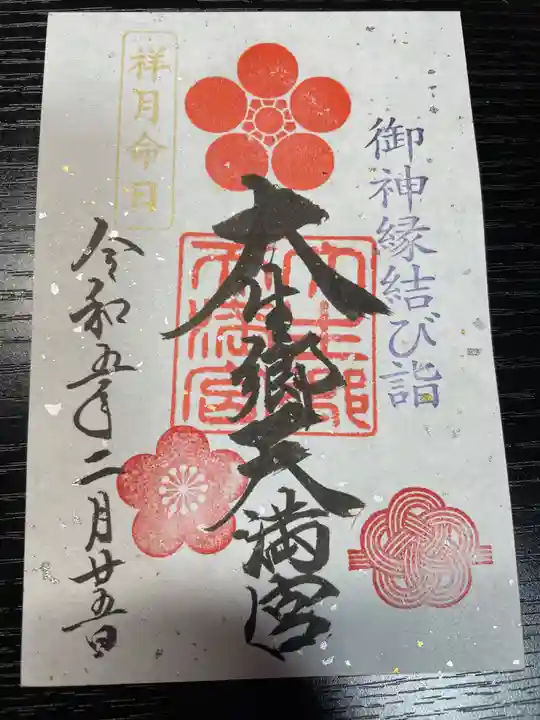 御神縁結び詣
大生郷天満宮
大生郷天満宮
祥月命日
令和五年二月廿五日